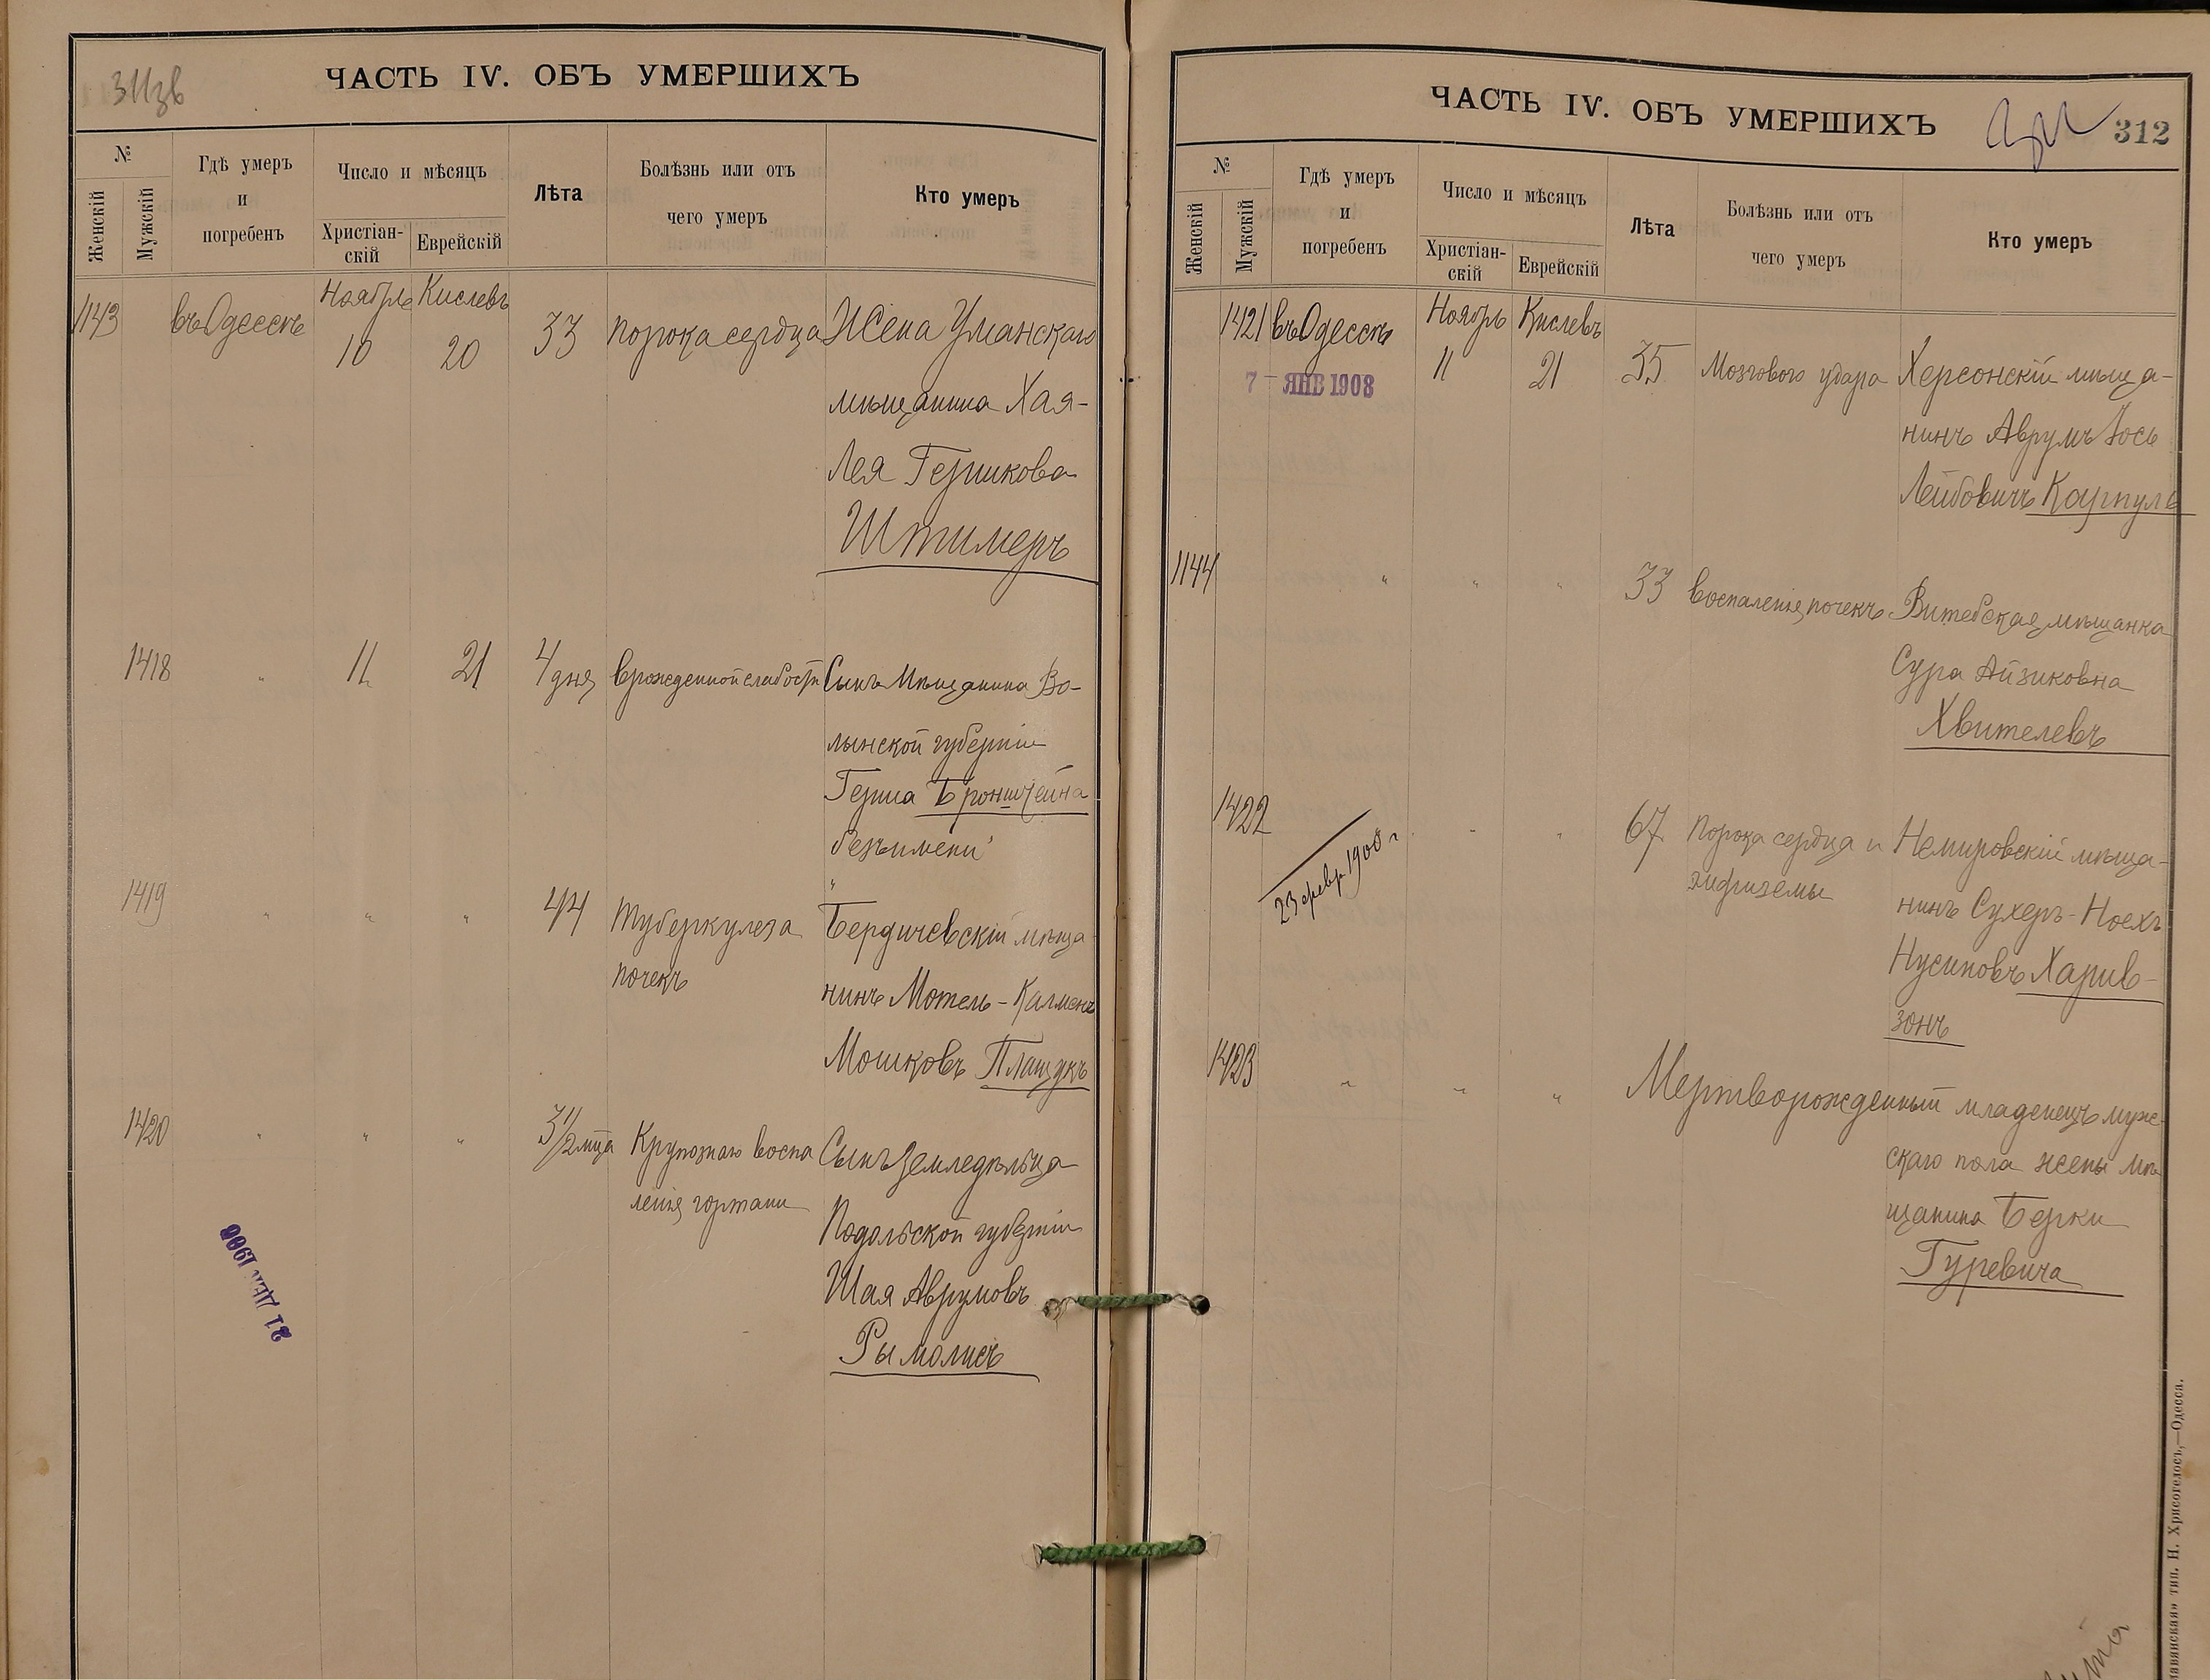 311зв
ЧАСТЬ IV. ОБЪ УМЕРШИХЪ
№
Женскій
Мужскій
Гдѣ умеръ
и
погребенъ
Число и мѣсяцъ
Христіан-
скій
Еврейскій
Лѣта
Болѣзнь или отъ
чего умеръ
Кто умеръ
1143 въ Одессѣ Ноябрь 10 Кислевъ 20 33 порока сердца Жена Уманскаго
мѣщанина Хая-
Лея Гершкова
Штимеръ
1418 " 11 21 4 дня врожденной слабости Сынъ Мѣщанина Во-
лынской губерніи
Герша Бронштейна
безъ имени
1419 " " " 44 Туберкулеза Бердичевскій мѣща-
почекъ нинъ Мотель-Калменъ
Мошковъ Плащукъ
1420 " " " 3 1/2 мца Крупознаго воспа Сынъ Земледѣльца
ленія гортани
Подольской губерніи
Шая Аврумовъ
Рымолисъ
21 ДЕК 1906
ЧАСТЬ IV. ОБЪ УМЕРШИХЪ
312
№
Женскій
Мужскій
Гдѣ умеръ
и
погребенъ
Число и мѣсяцъ
Христіан-
скій
Еврейскій
Лѣта
Болѣзнь или отъ
чего умеръ
Кто умеръ
1421 въ Одессѣ Ноябрь 11 Кислевъ 21 35 Мозгового удара Херсонскій мѣща-
7 - ЯНВ 1908
нинъ Аврумъ Іось
Лейбовичъ Карпуль
1144 " " " 33 воспаленія почекъ Витебская мѣщанка
Сура Айзиковна
Хвителевъ
1422 " " " 67 Порока сердца и Немировскій мѣща-
эмфиземы
23 февр 1908 г
нинъ Сухеръ-Ноехъ
Нусиновъ Харив-
зонъ
1423 " " " Мертворожденный младенецъ муж
скаго пола жены мѣ
щанина Берки
Гуревича
тип. Н. Хрисогелосъ,—Одесса.